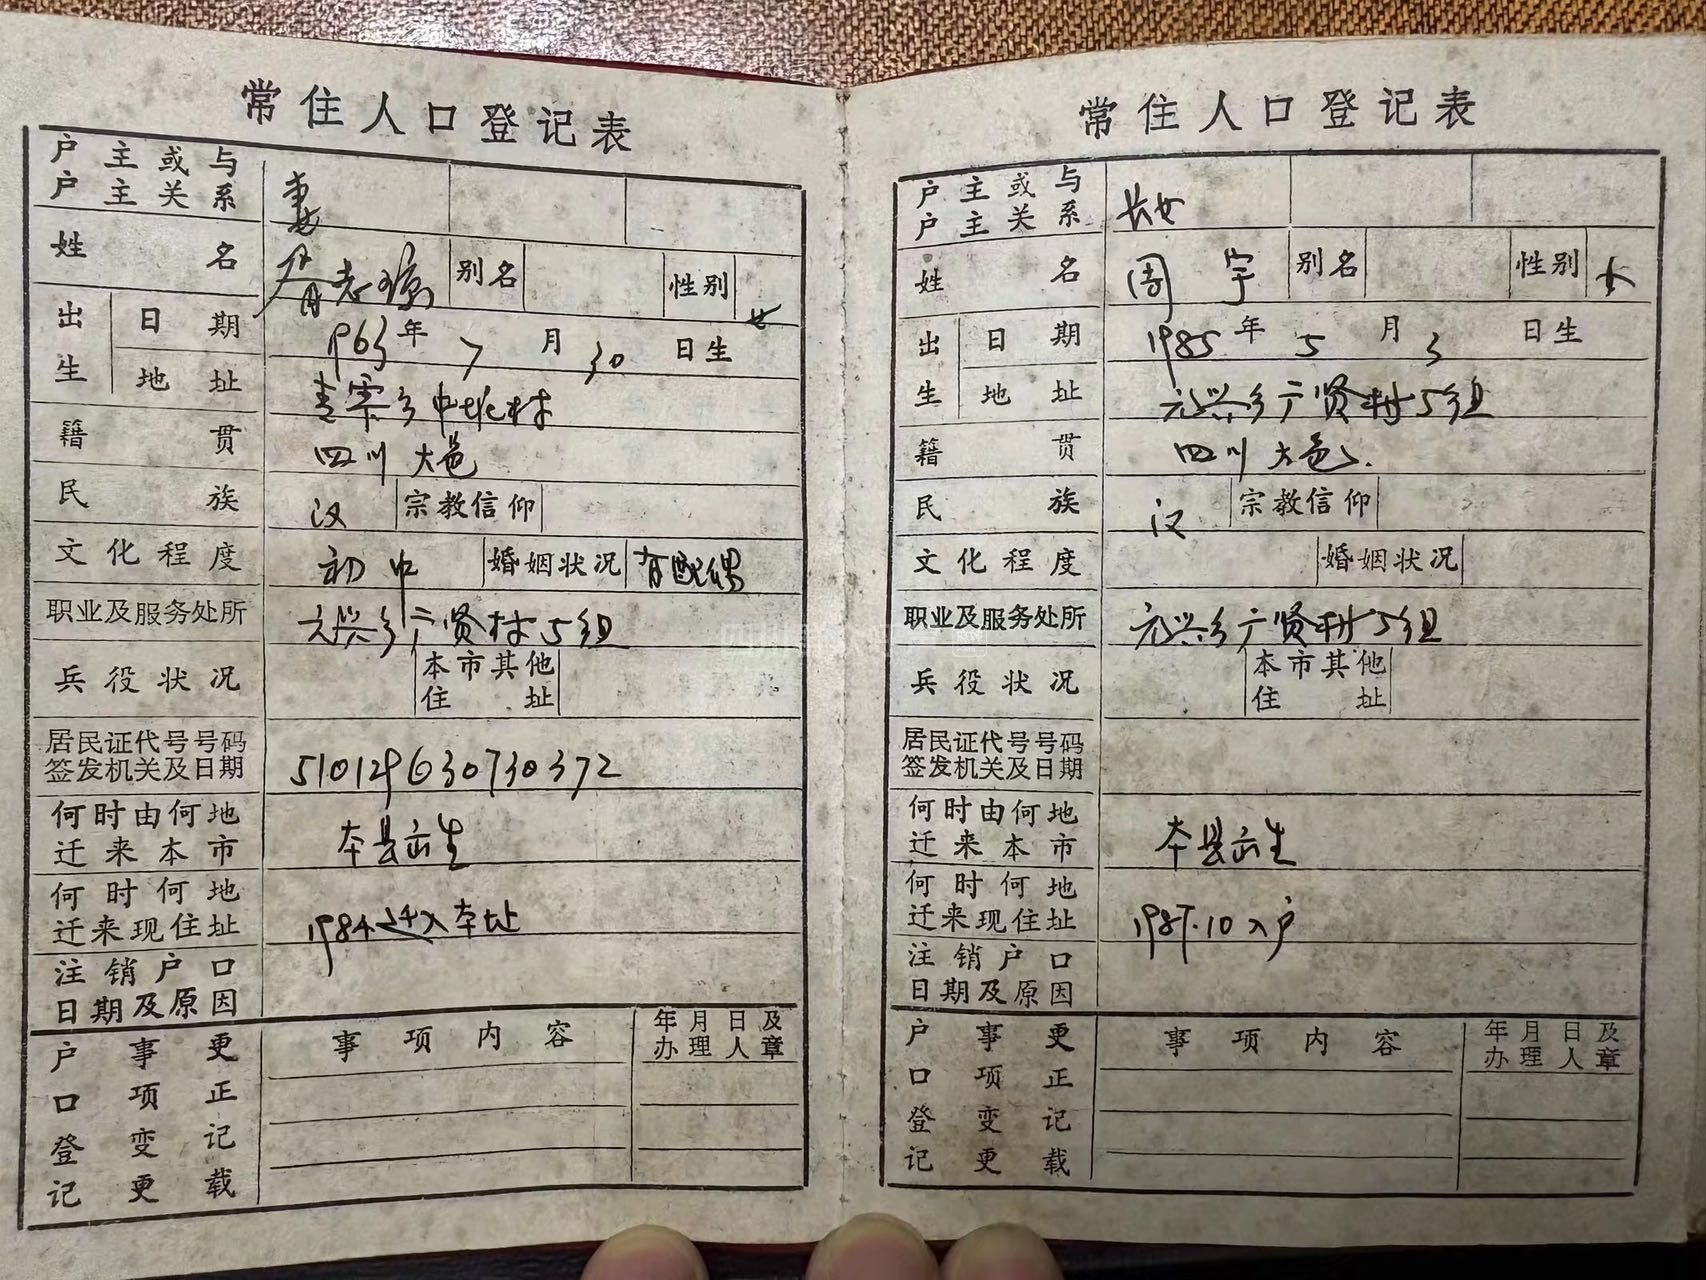 常住人口登记表
户主或与户主关系 妻
姓名 志琼 别名 性别 女
出生 日期 1963年7月30日生
地址 青霞乡中坝村
籍贯 四川大邑
民族 汉 宗教信仰
文化程度 初中 婚姻状况 有配偶
职业及服务处所 元兴乡广贤村5组
兵役状况 本市其他住址
居民证代号号码签发机关及日期 510129630730372
何时由何地迁来本市 本县出生
何时何地迁来现住址 1984. 迁入本址
注销户口日期及原因
户口登记事项变更更正记载 事项内容 年月日及办理人章
常住人口登记表
户主或与户主关系 长女
姓名 周宇 别名 性别 女
出生 日期 1985年5月3日生
地址 元兴乡广贤村5组
籍贯 四川大邑
民族 汉 宗教信仰
文化程度 婚姻状况
职业及服务处所 元兴乡广贤村5组
兵役状况 本市其他住址
居民证代号号码签发机关及日期
何时由何地迁来本市 本县出生
何时何地迁来现住址 10入户
注销户口日期及原因
户口登记事项变更更正记载 事项内容 年月日及办理人章